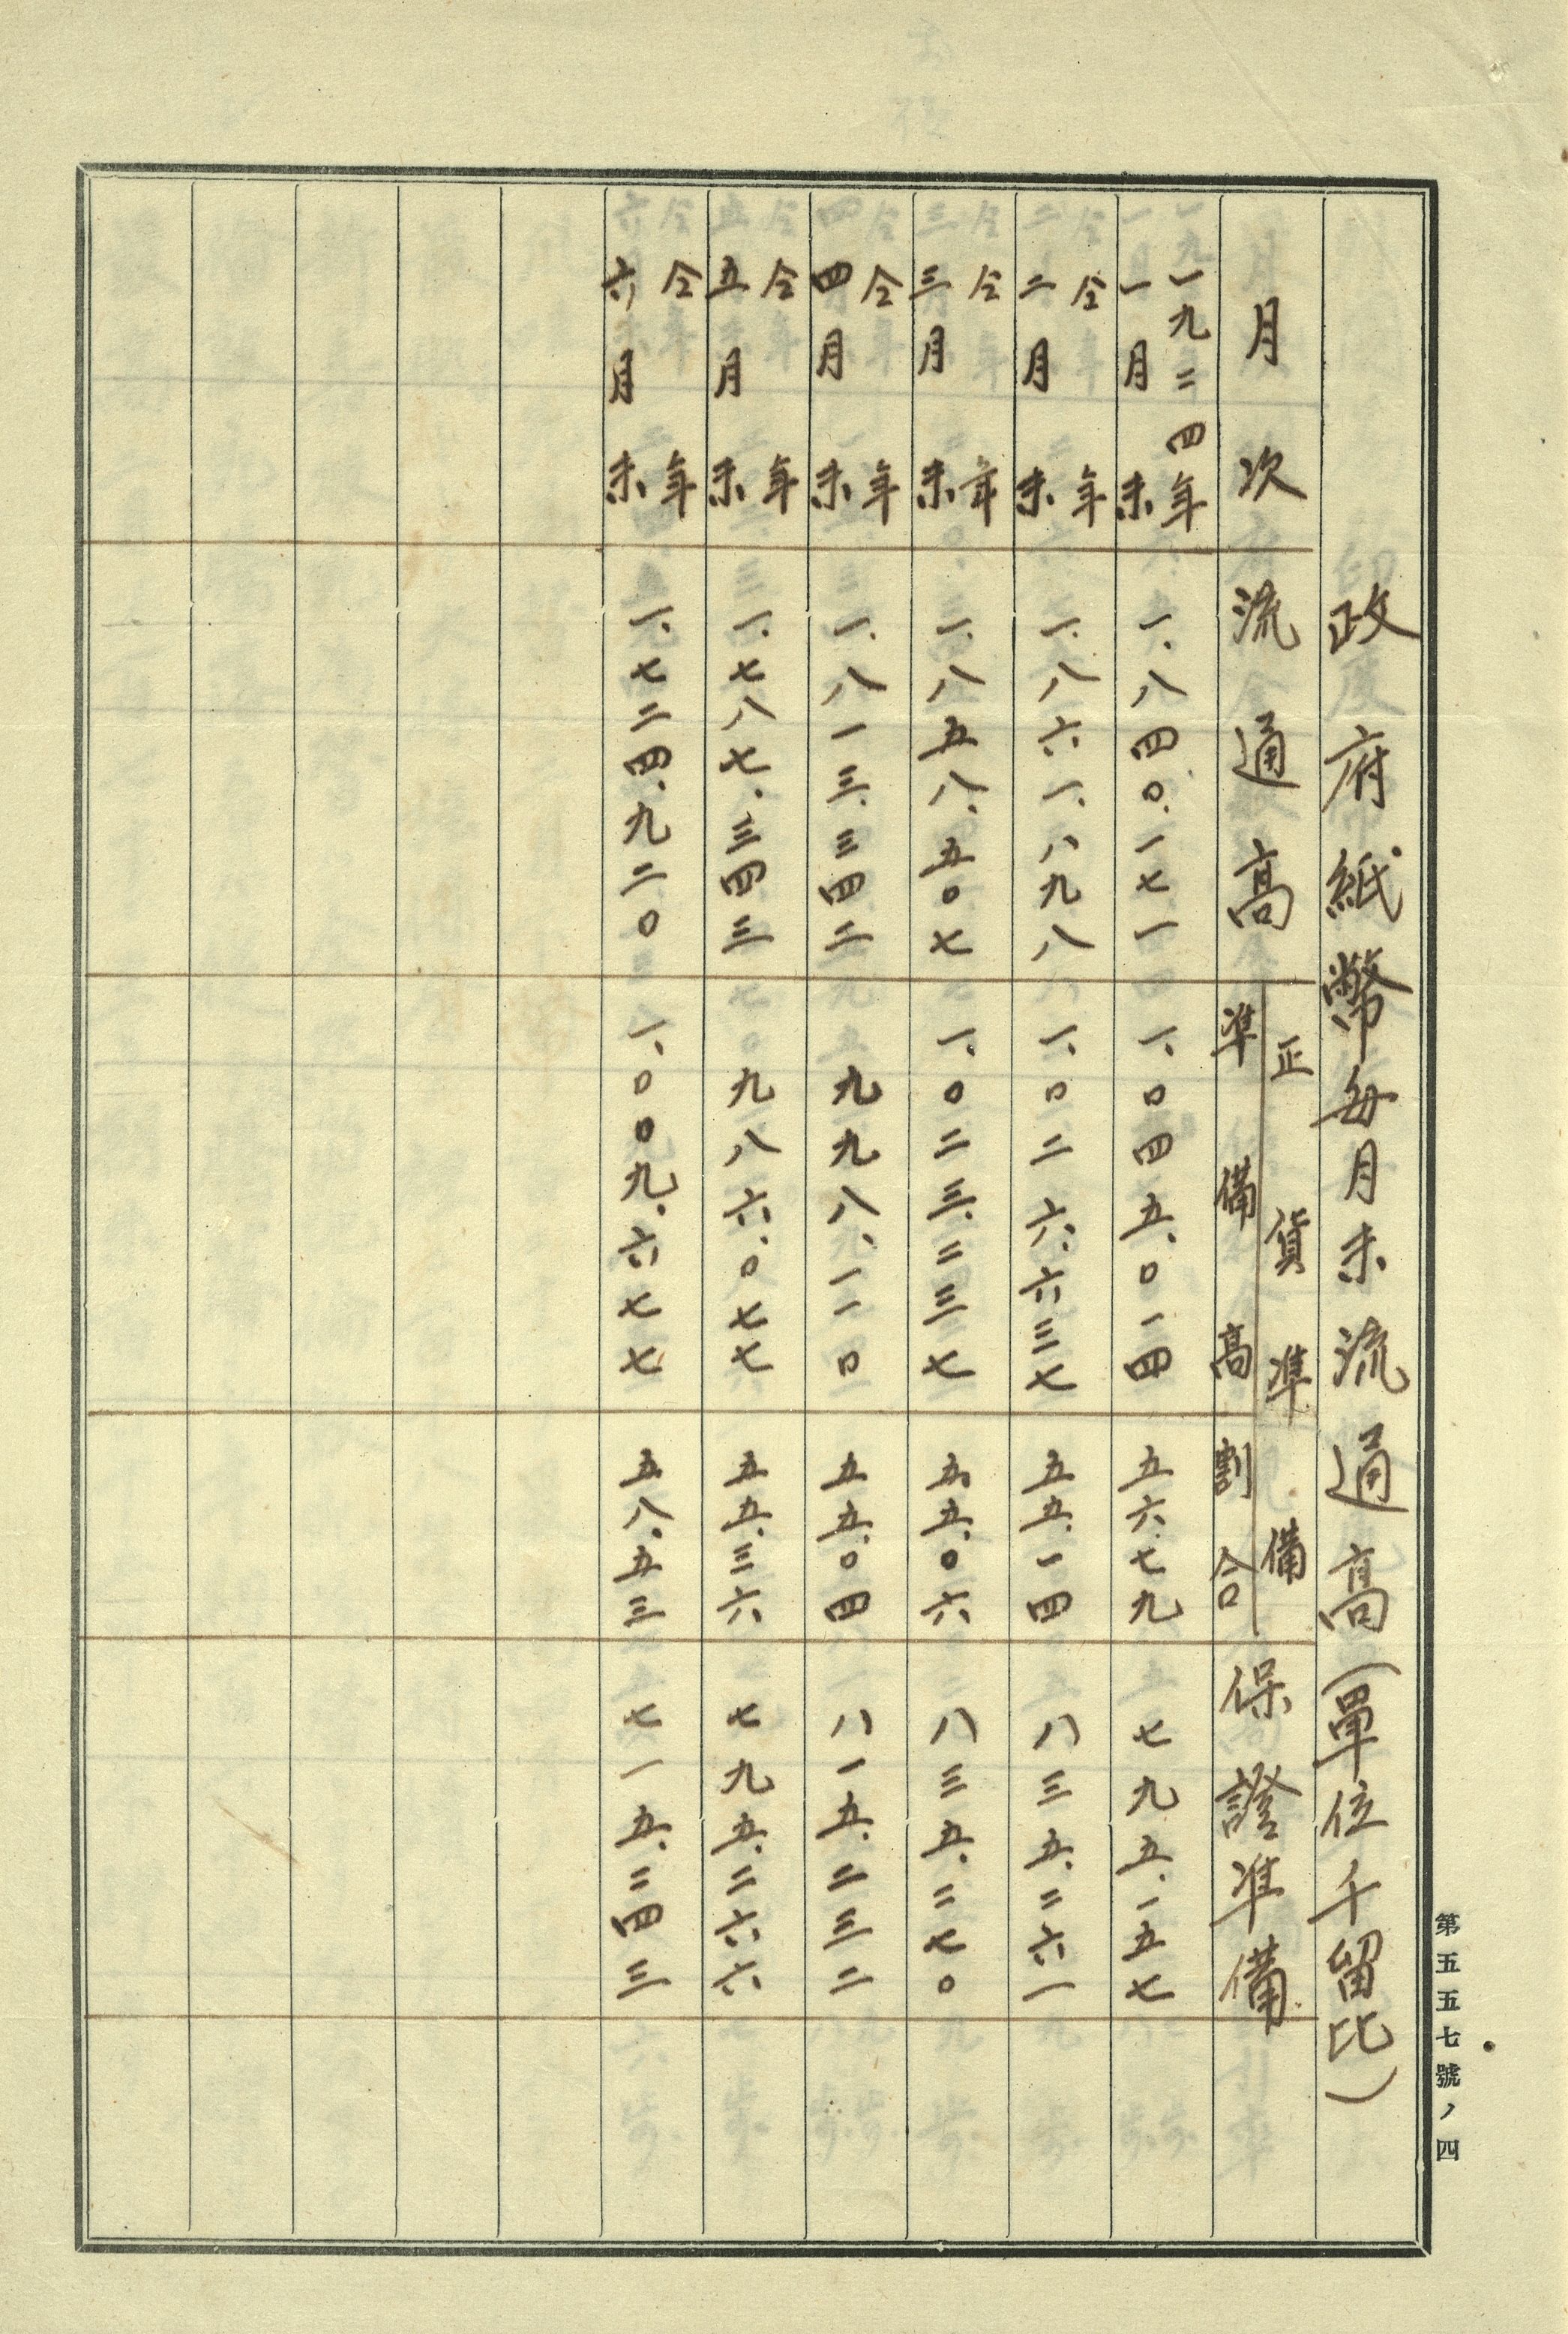 政府紙幣毎月末流通高(單位千留比)
月次 流通高 正貨準備 準備高 割合 保證準備
一九二四年一月末 一、八四〇、一七一 一、〇四五、〇一四 五六、七九 七九五、一五七
仝年二月末 一、八六一、八九八 一、〇二六、六三七 五五、一四 八三五、二六一
仝年三月末 一、八五八、五〇七 一、〇二三、二三七 五五、〇六 八三五、二七〇
仝年四月末 一、八一三、三四二 九九八、一一〇 五五、〇四 八一五、二三二
仝年五月末 一、七八七、三四三 九八六、〇七七 五五、三六 七九五、二六六
仝年六月末 一、七二四、九二〇 一、〇〇九、六七七 五八、五三 七一五、二四三
第五五七號ノ四